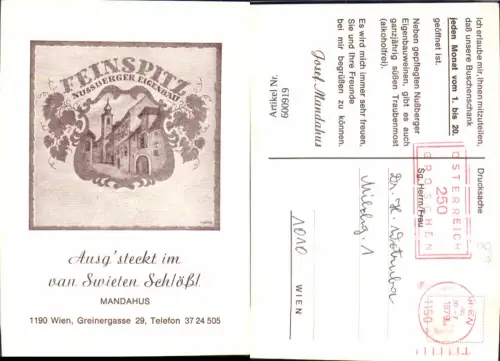 FEINSPITZ
NUSSBERGER EIGENBAU
Ausg'steckt im
van Swieten Schlößl
MANDAHUS
1190 Wien, Greinergasse 29, Telefon 37 24 505
Ich erlaube mir, Ihnen mitzuteilen,
daß unsere Buschenschank
jeden Monat vom 1. bis 20.
geöffnet ist.
Neben gepflegten Nußberger
Eigenbauweinen, gibt es auch
ganzjährig süßen Traubenmost
(alkoholfrei).
Es wird mich immer sehr freuen,
Sie und Ihre Freunde
bei mir begrüßen zu können.
Josef Mandahus
Artikel Nr.
600919
Drucksache
Sg. Herrn/Frau
ÖSTERREICH
250
GROSCHEN
WIEN
1979
1150
Dr. H.
1010
WIEN